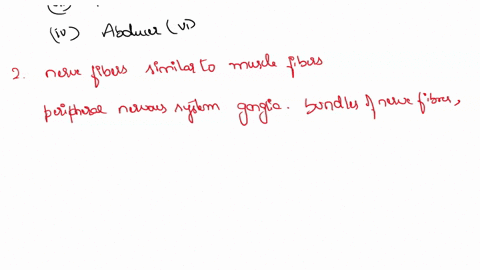 (iv) Abducer (VI)
2. nerve fibers similar to muscle fibers
peripheral nervous system ganglia. bundles of nerve fibres,